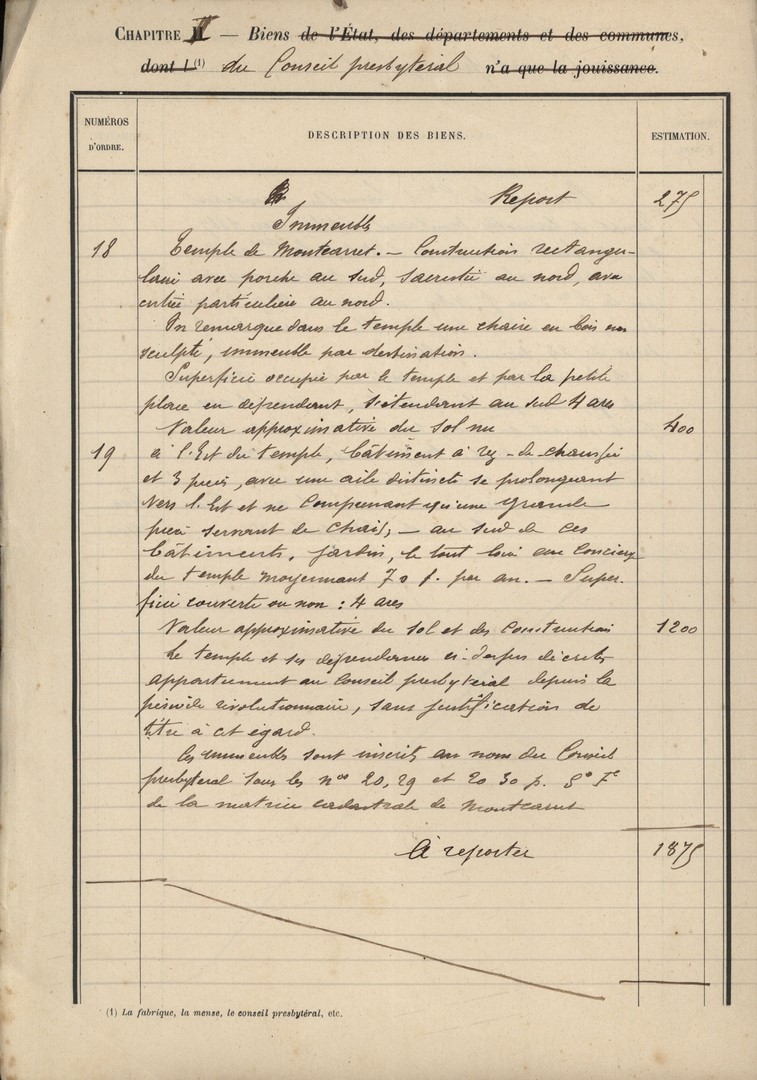 CHAPITRE II — Biens de l'État, des départements et des communes,
dont l (1) du Conseil presbytéral n'a que la jouissance.
NUMÉROS D'ORDRE.
DESCRIPTION DES BIENS.
ESTIMATION.
Report 275
Immeuble
18 Temple de Montcarret. — Construction rectangu-
laire avec porche au sud, sacristie au nord, avec
entrée particulière au nord.
On remarque dans le temple une chaire en bois
sculpté, immeuble par destination.
Superficie occupée par le temple et par la petite
place en dépendant, s'étendant au sud 4 ares
Valeur approximative du sol nu 400
19 à l'Est du temple, bâtiment à rez-de-chaussée
et 3 pièces, avec une aile distincte se prolongeant
vers l'Est et ne comprenant qu'une grande
pièce servant de chais; — au sud de ces
bâtiments, jardin, le tout loué au concierge
du temple moyennant 70 f. par an. — Super-
ficie couverte ou non : 4 ares
Valeur approximative du sol et des constructions 1200
Le temple et ses dépendances ci-dessus décrits
appartiennent au Conseil presbytéral depuis la
période révolutionnaire, sans justification de
titre à cet égard.
Ces immeubles sont inscrits au nom du Conseil
presbytéral sous les nos 20, 29 et 20 30 p. Son F
de la matrice cadastrale de Montcarret
à reporter 1875
(1) La fabrique, la mense, le conseil presbytéral, etc.